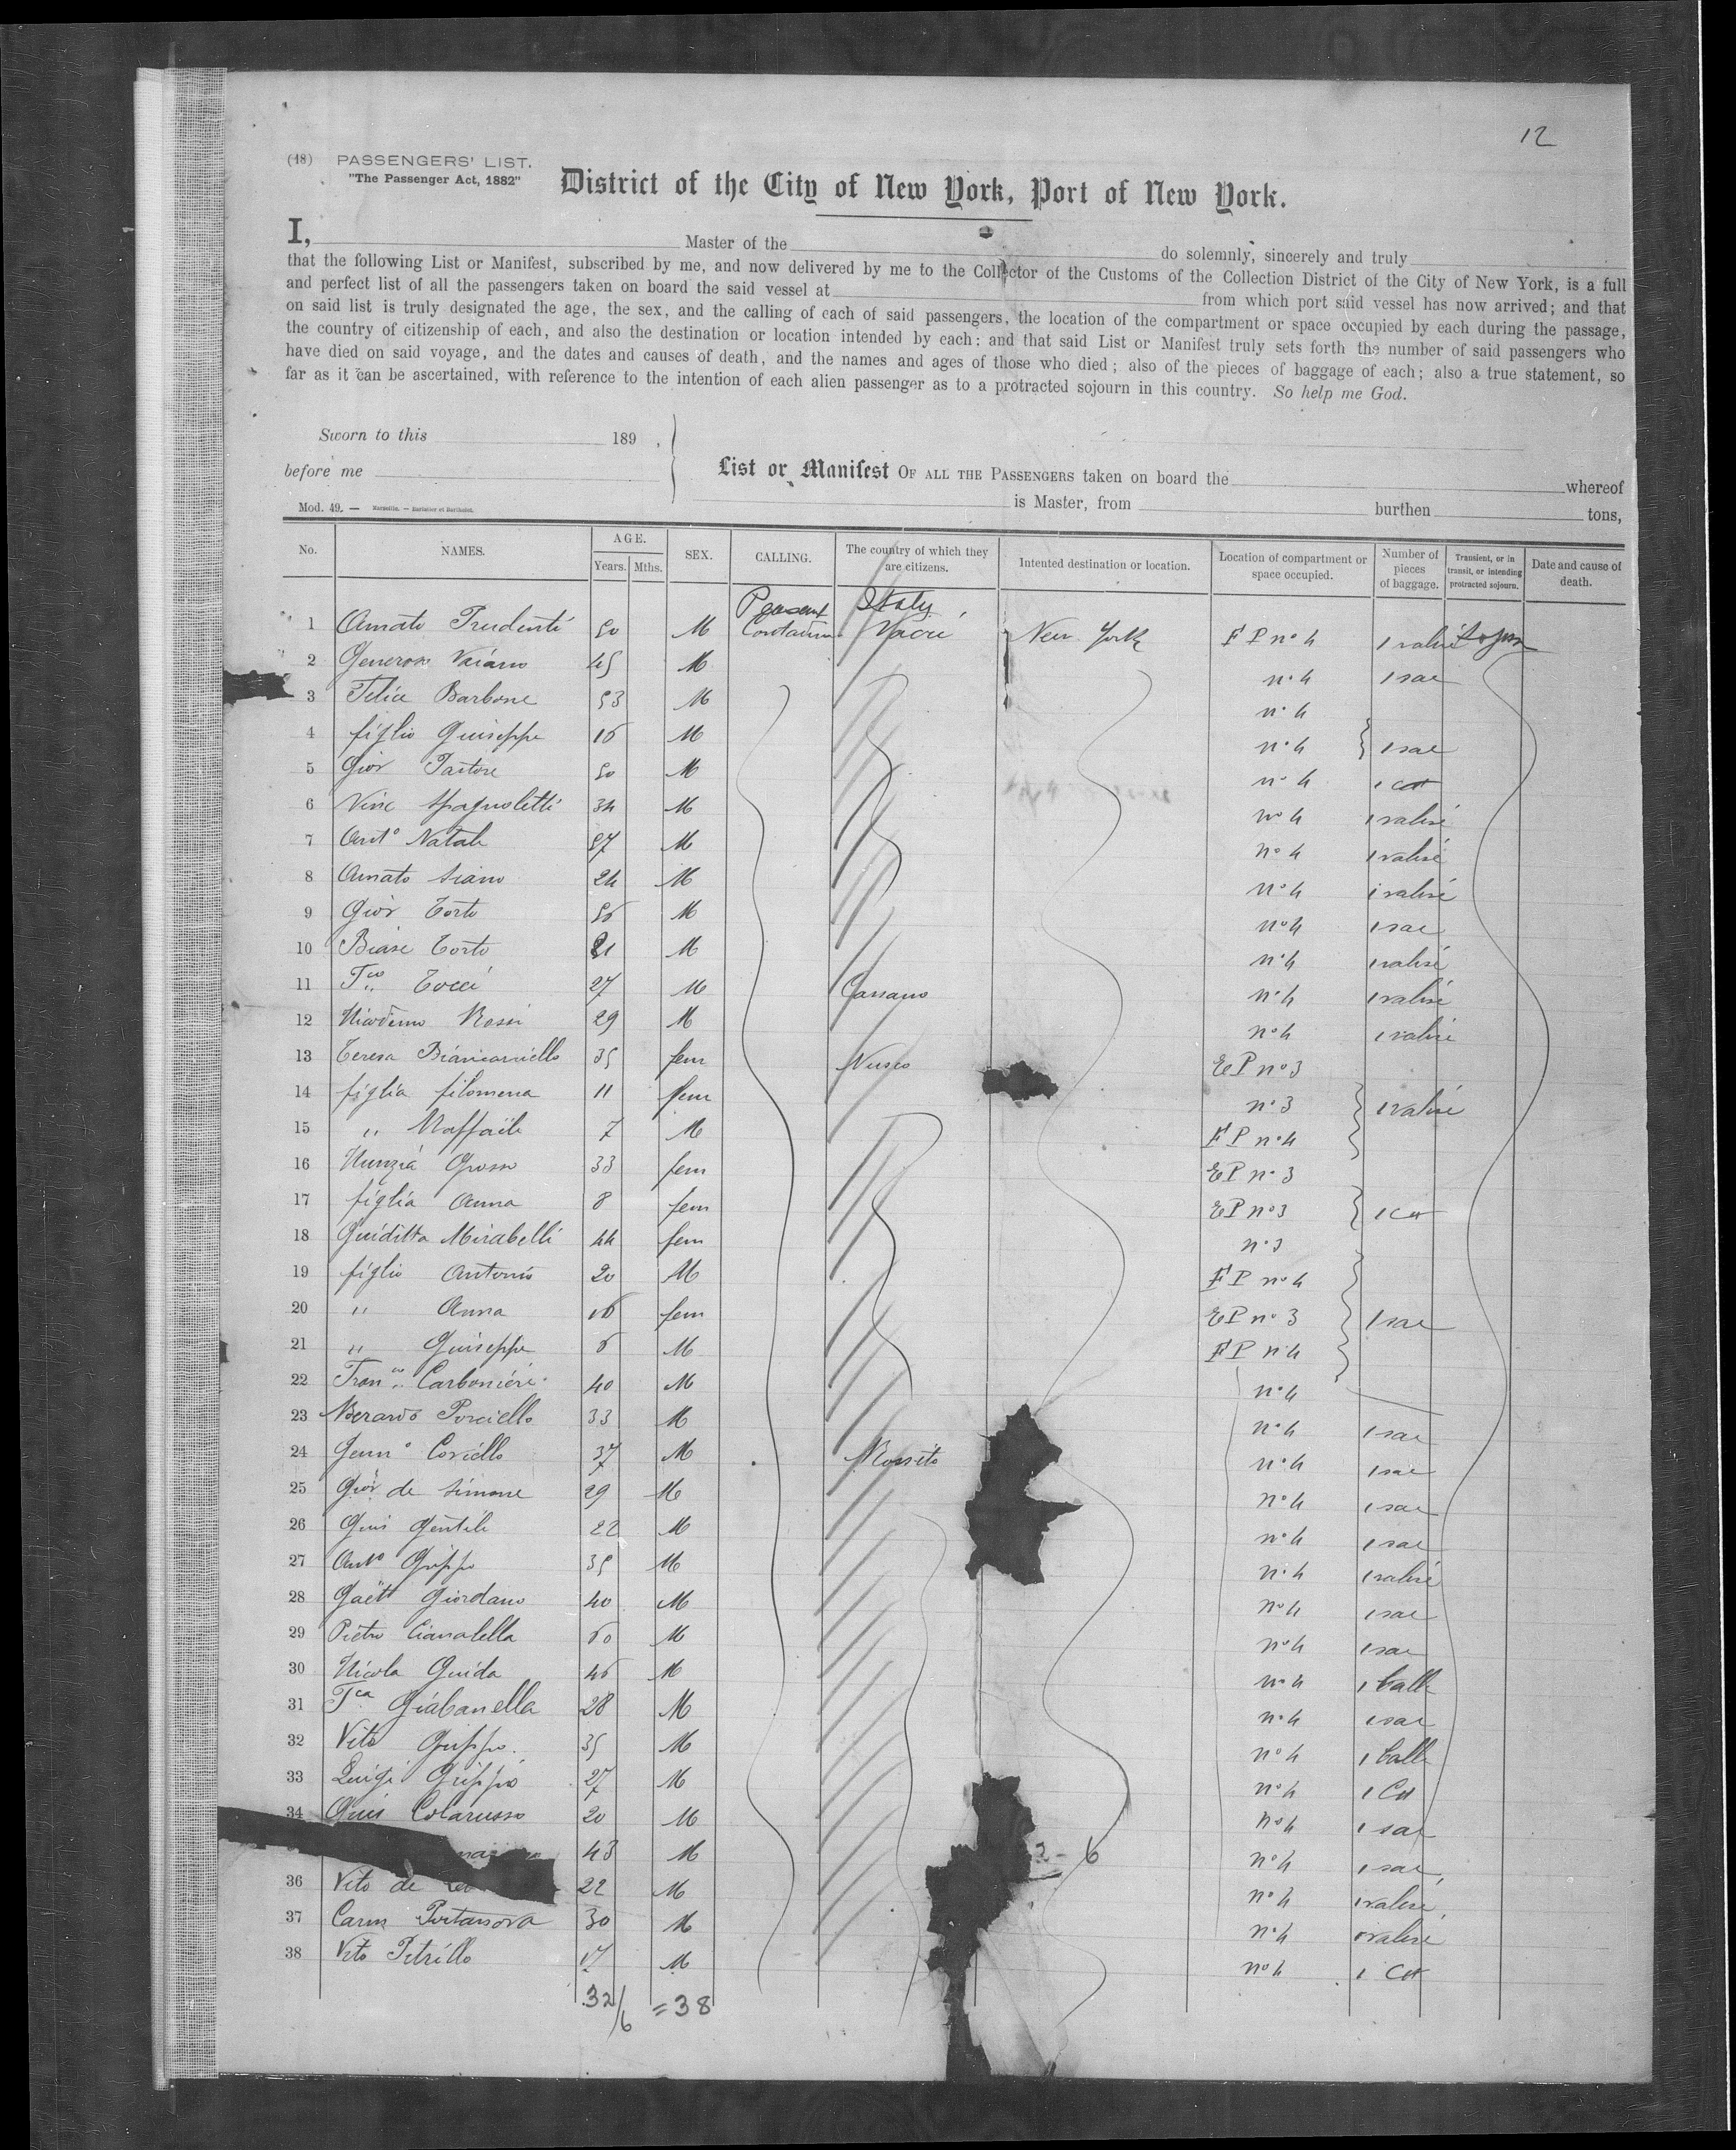 12
(48) PASSENGERS' LIST.
"The Passenger Act, 1882"
District of the City of New York, Port of New York.
I, Master of the do solemnly, sincerely and truly
that the following List or Manifest, subscribed by me, and now delivered by me to the Collector of the Customs of the Collection District of the City of New York, is a full
and perfect list of all the passengers taken on board the said vessel at from which port said vessel has now arrived; and that
on said list is truly designated the age, the sex, and the calling of each of said passengers, the location of the compartment or space occupied by each during the passage,
the country of citizenship of each, and also the destination or location intended by each; and that said List or Manifest truly sets forth the number of said passengers who
have died on said voyage, and the dates and causes of death, and the names and ages of those who died; also of the pieces of baggage of each; also a true statement, so
far as it can be ascertained, with reference to the intention of each alien passenger as to a protracted sojourn in this country. So help me God.
Sworn to this 189 ,
before me
List or Manifest OF ALL THE PASSENGERS taken on board the whereof
is Master, from burthen tons,
Mod. 49. — Marseille. — Barlatier et Barthelet.
No. NAMES. AGE. Years. Mths. SEX. CALLING. The country of which they are citizens. Intented destination or location. Location of compartment or space occupied. Number of pieces of baggage. Transient, or in transit, or intending protracted sojourn. Date and cause of death.
Peasant Italy
1 Amato Prudenti 50 M New York F P n° 4 1 valise
2 Generoso Vaiano 45 M n° 4 1 sac
3 Felice Barbone 53 M n° 4
4 figlio Guiseppe 16 M n° 4 1 sac
5 Giov Pastore 50 M n° 4
6 Vinc Spagnoletti 34 M n° 4 1 valise
7 Ant° Natale 57 M n° 4 1 valise
8 Amato Siano 24 M n° 4 1 valise
9 Giov Torto 56 M n° 4 1 sac
10 Biase Torto 21 M n° 4 1 valise
11 Tocci 27 M Cassano n° 4 1 valise
12 Nicodemo Rossi 29 M n° 4 1 valise
13 Teresa Biancaniello 35 fem Nusco E P n° 3
14 figlia filomena 11 fem n° 3 1 valise
15 " Raffaele 7 M F P n° 4
16 Nunzia Grosso 33 fem E P n° 3
17 figlia Anna 8 fem E P n° 3
18 Guiditta Mirabelli 44 fem n° 3
19 figlio Antonio 20 M F P n° 4
20 " Anna 16 fem E P n° 3 1 sac
21 " Guiseppe 6 M F P n° 4
22 Carbonieri 40 M n° 4
23 Berardo Porciello 33 M n° 4 1 sac
24 Genn° Coriello 37 M n° 4 1 sac
25 Giov de Simone 29 M n° 4 1 sac
26 Gius Gentile 22 M n° 4 1 sac
27 Ant° Grippo 35 M n° 4 1 valise
28 Gaet Giordano 40 M n° 4 1 sac
29 Pietro 60 M n° 4 1 sac
30 Nicola Guida 46 M n° 4 1 balle
31 Giabanella 28 M n° 4 1 sac
32 Vito Grippo 35 M n° 4 1 balle
33 Luigi Grippo 27 M n° 4
34 Gius Colarusso 20 M n° 4 1 sac
43 M 2 - 6 n° 4 1 sac
36 Vito de 22 M n° 4 1 valise
37 Carm Portanova 30 M n° 4 1 valise
38 Vito Petrillo 17 M n° 4
32/6 = 38